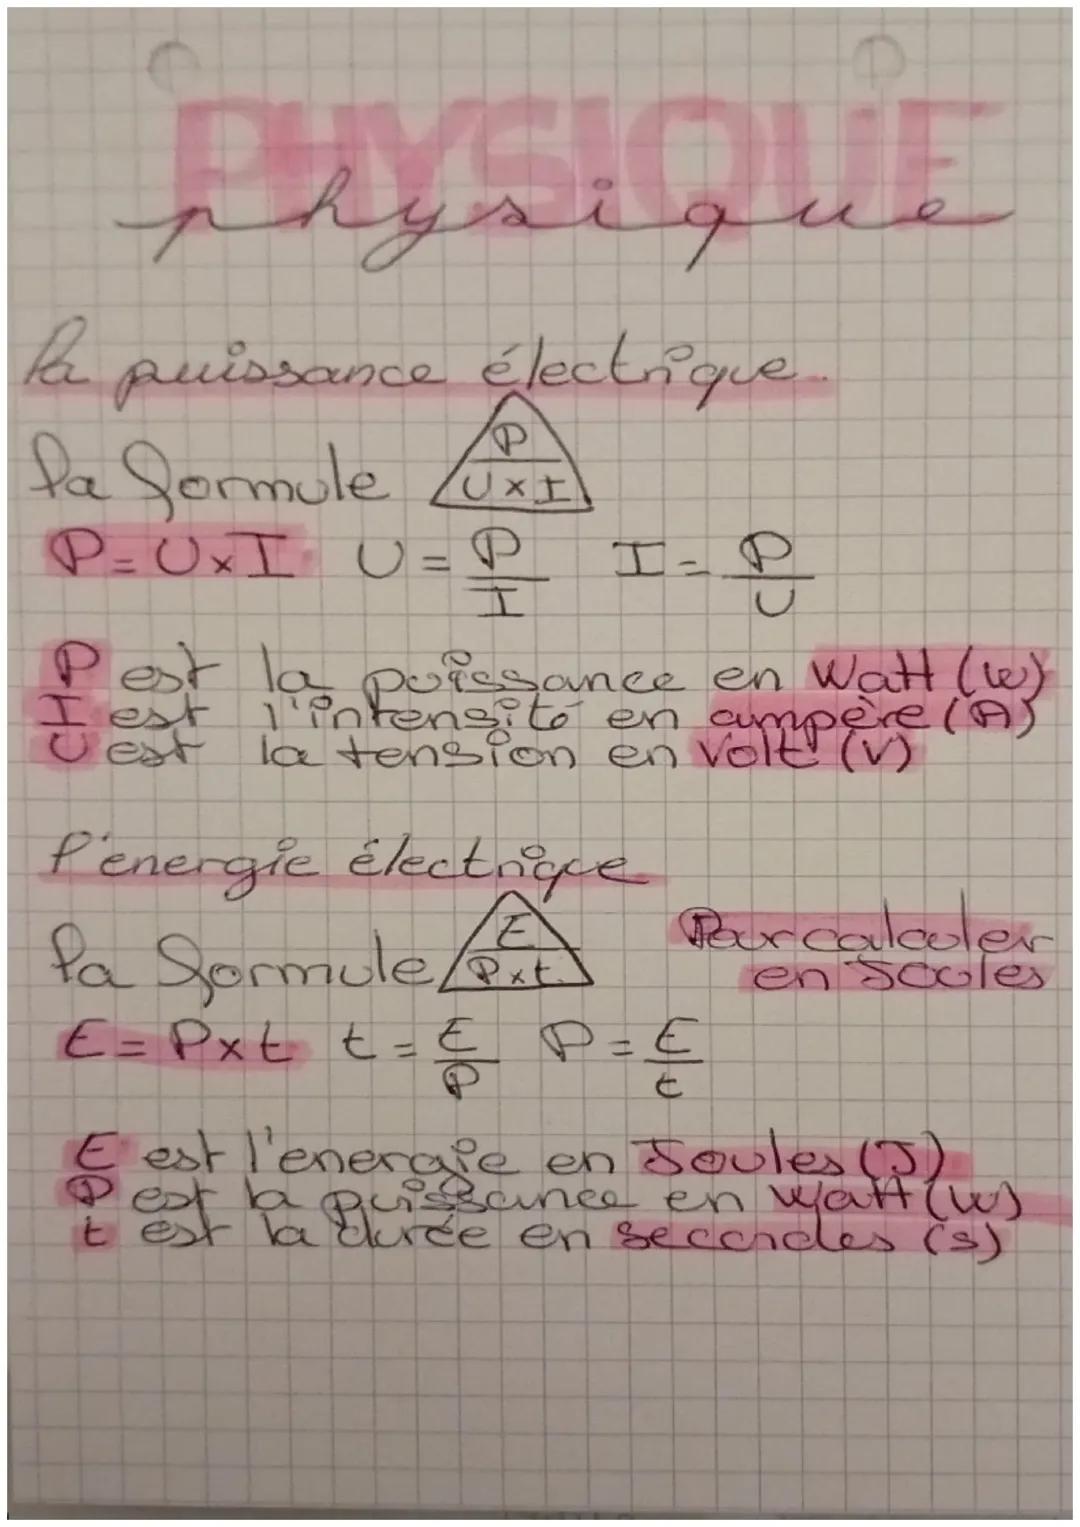 PHYSIQUE
physique
la puissance électrique.
la formule P U x I
P = U x I U = P/I I = P/U
P est la puissance en Watt (W)
I est l'intensité en ampère (A)
U est la tension en Volt (V)
l'énergie électrique
la formule E P x t. Pour calculer
en Joules
E = P x t t = E/P P = E/t
E est l'energie en Joules (J)
P est la puissance en watt (w)
t est la durée en secondes (s)